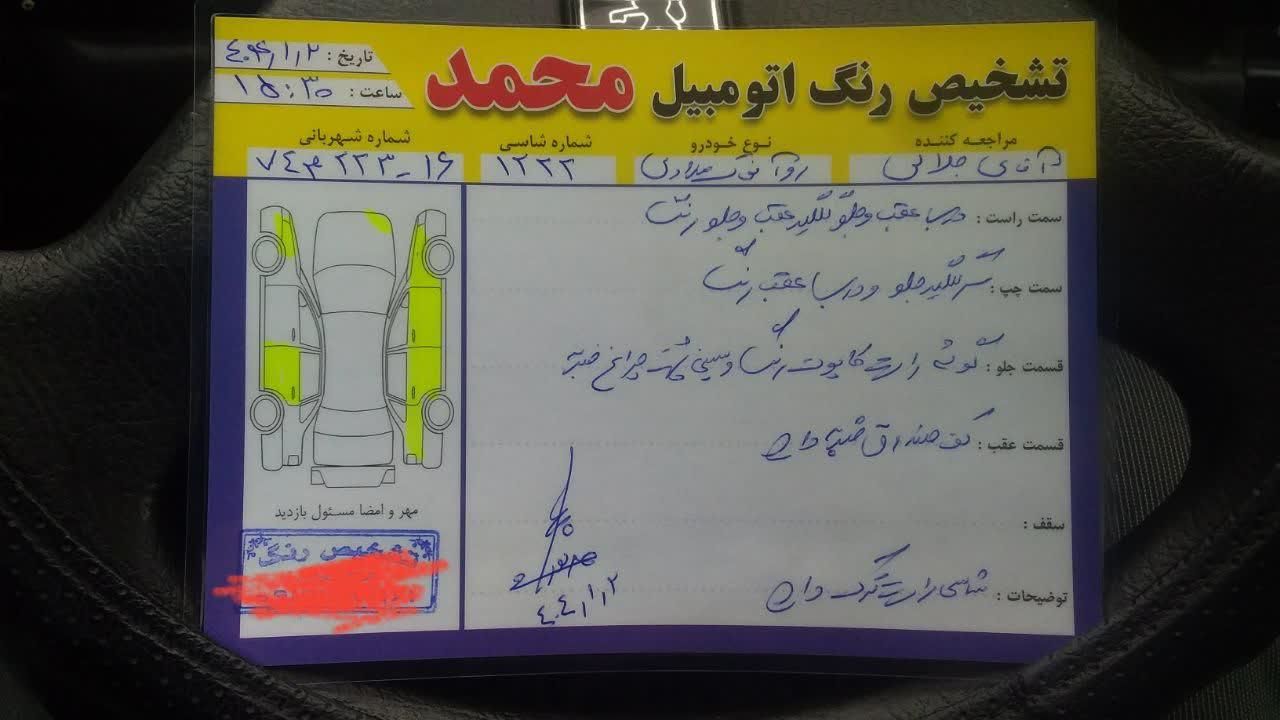 تشخیص رنگ اتومبیل محمد
تاریخ : ۴۰۴,۱,۲
ساعت : ۱۵:۳۰
مراجعه کننده
آقای جلالی
نوع خودرو
روآ نوک مدادی
شماره شاسی
۱۲۲۲
شماره شهربانی
۷۴م۲۲۳-۱۶
سمت راست : درب عقب و جلو گلگیر عقب و جلو رنگ
سمت چپ : سر گلگیر جلو و درب عقب رنگ
قسمت جلو : گوشه راست کاپوت رنگ و سینی پشت چراغ ضربه
قسمت عقب : کف صندوق ضربه دارد
سقف :
توضیحات : شاسی راست ترک دارد
۴۰۴,۱,۲
مهر و امضا مسئول بازدید
تشخیص رنگ